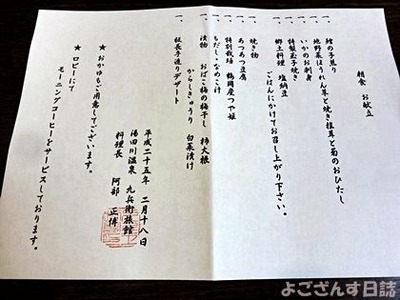 朝食 お献立
一、鱈の子煎り
一、地野菜ほうれん草と焼き椎茸と菊のおひたし
一、いかのお刺身
一、特製玉子焼き
一、郷土料理 塩納豆
ごはんにかけてお召し上がり下さい。
一、焼き物
一、あつあつ豆腐
一、特別栽培 鶴岡産つや姫
一、もだし・なめこ汁
一、漬物 おばこ梅の梅干し 柿大根
からしきゅうり 白菜漬け
一、板長手造りデザート
平成二十五年 二月十八日
湯田川温泉 九兵衛旅館
料理長 阿部 正博
★ おかゆもご用意してございます。
★ ロビーにて
モーニングコーヒーをサービスしております。
よござんす日誌